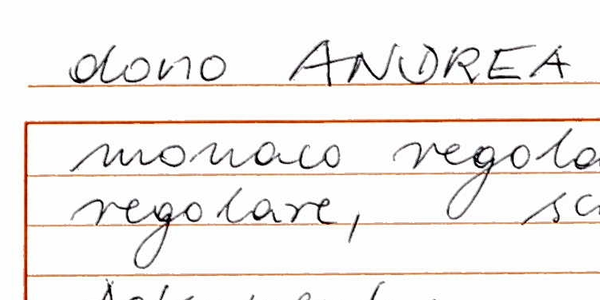 dono ANDREA
monaco regola
regolare, sc